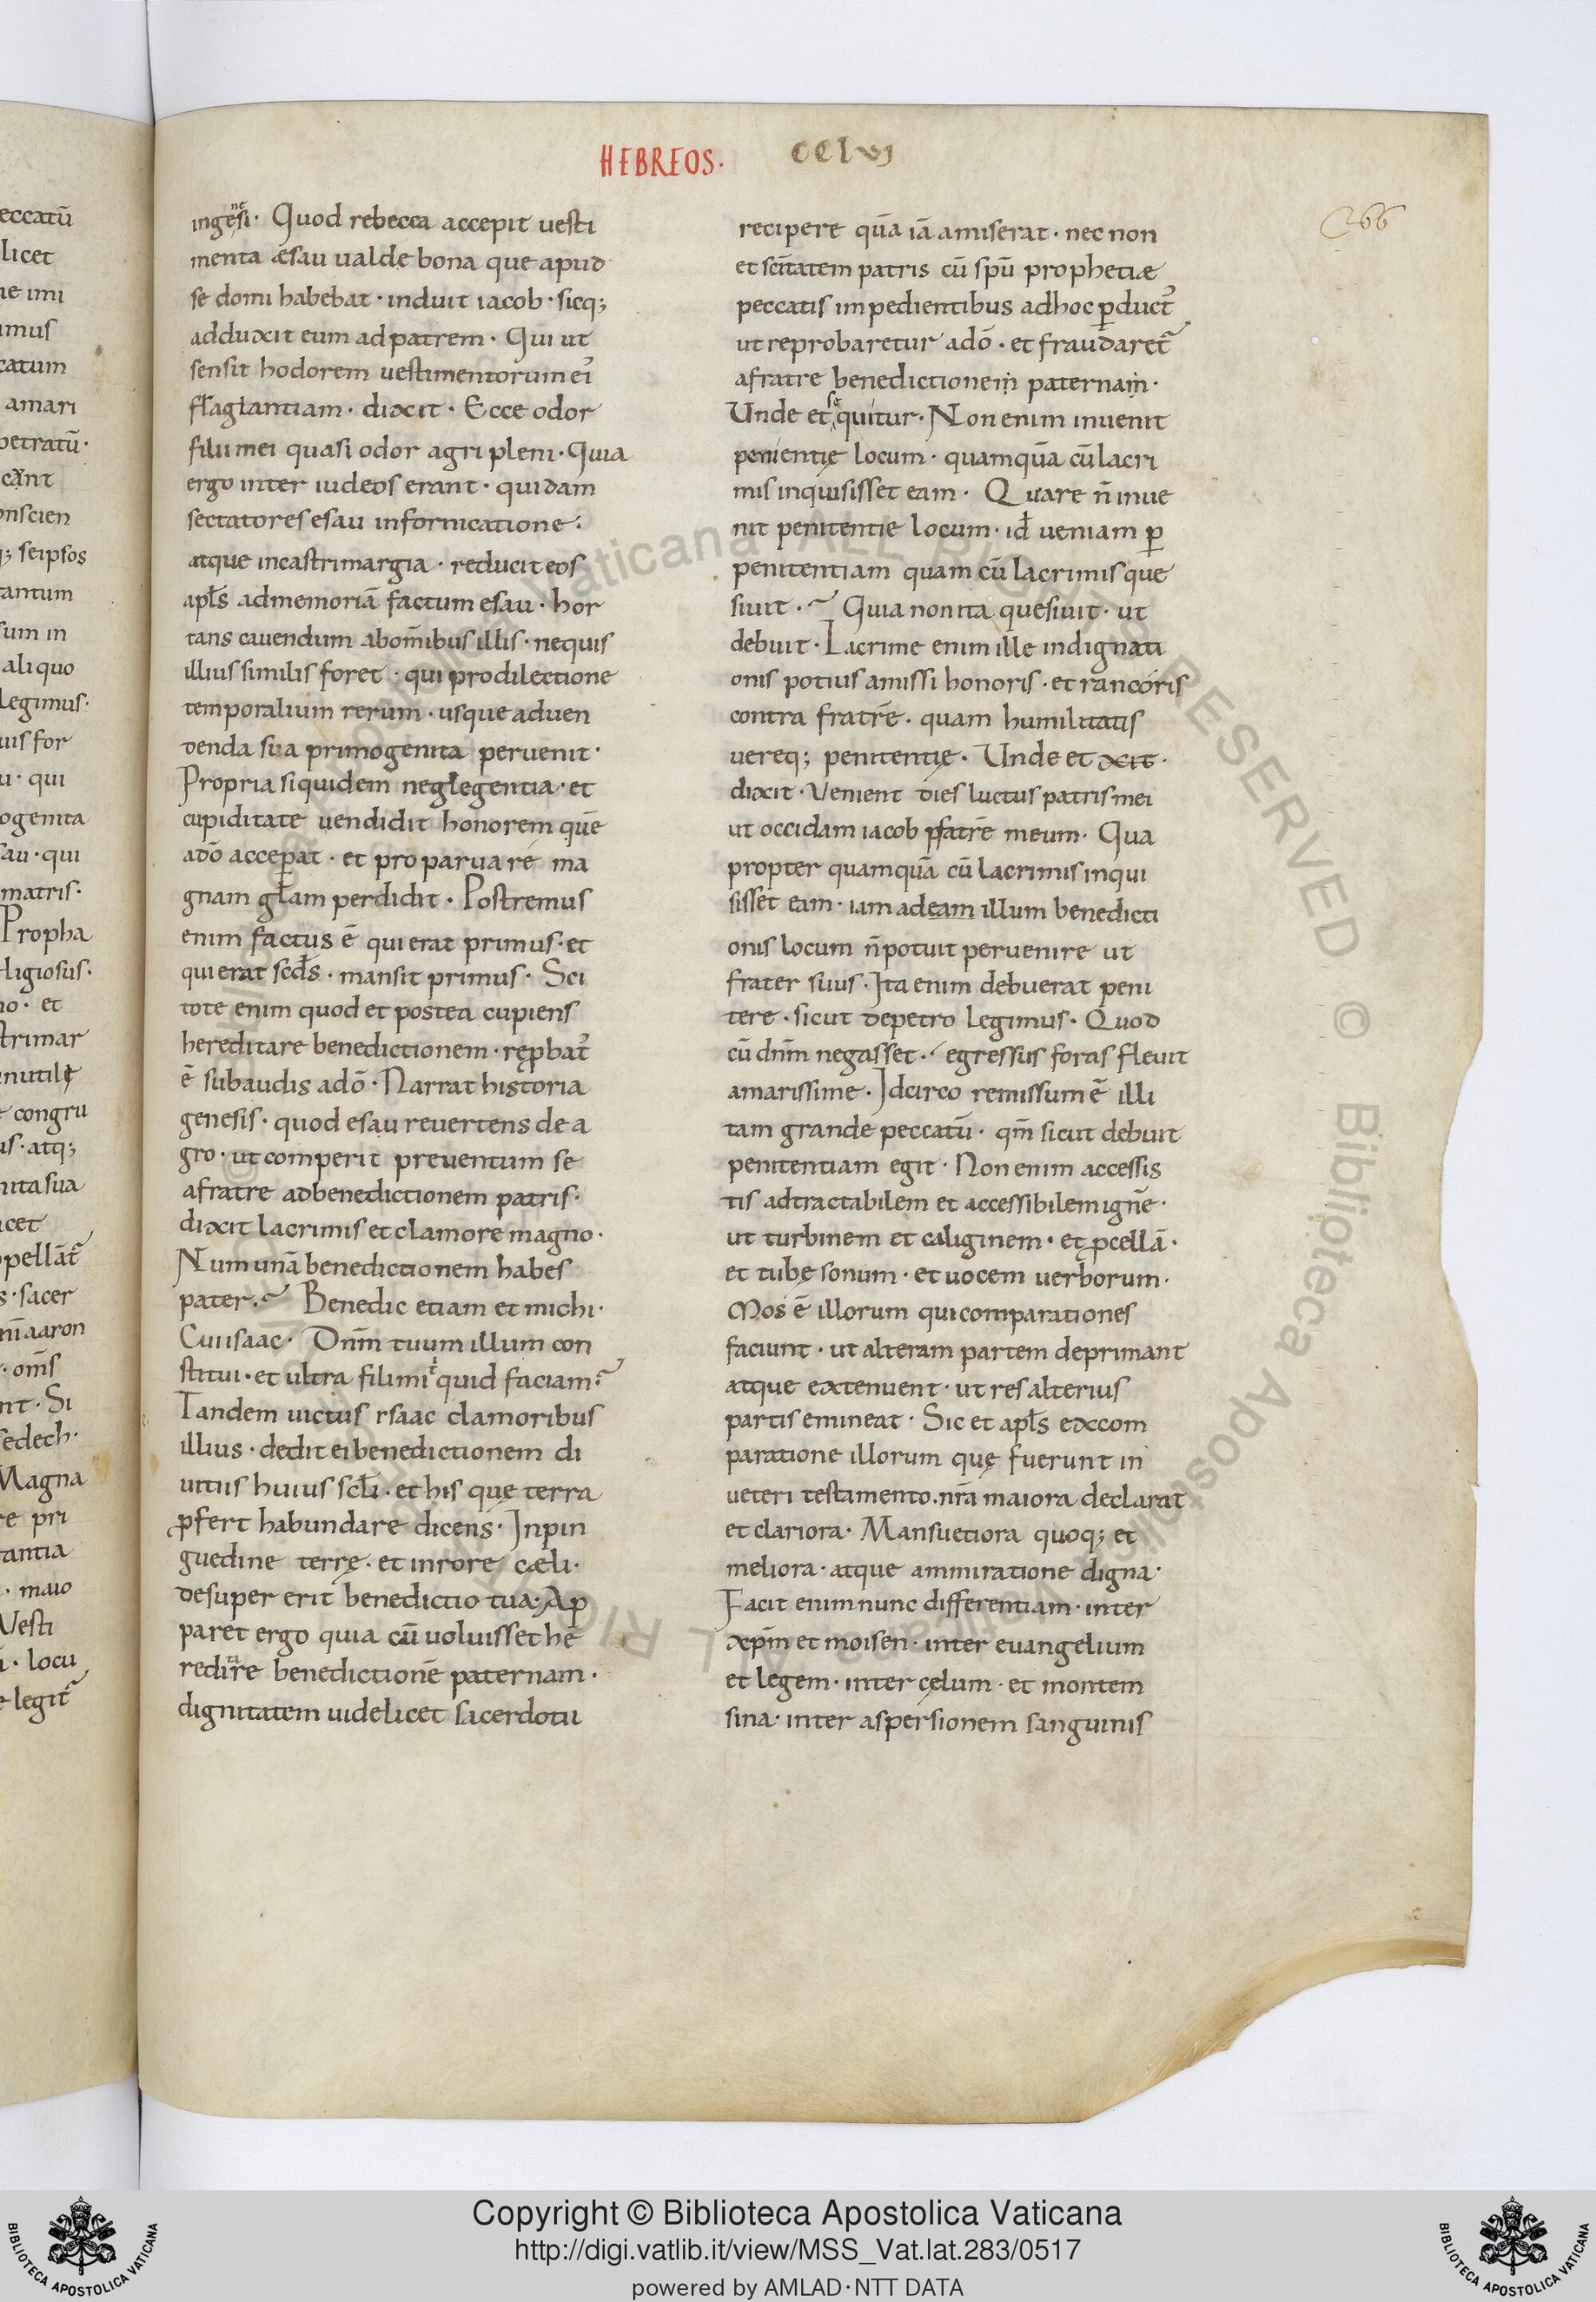 HEBREOS· CCLVJ
266
eccatū
licet
ne imi
imus
catum
amari
petratū·
cant
onscien
q; seipsos
tantum
sum in
aliquo
legimus·
uis for
u· qui
ogenita
sau· qui
matris·
Propha
ligiosus·
no· et
trimar
inutilę
congru
us· atq;
nita sua
icet
ppellāt
s· sacer
ni aaron
· om̄s
nt· Si
sedech·
Magna
re pri
tantia
· maio
Vesti
i· locu
legit
inge̜nesi· Quod rebecca accepit uesti
menta æsau ualde bona que apud
se domi habebat· induit iacob· sicq;
adduxit eum ad patrem· Qui ut
sensit hodorem uestimentorum ei᾿
flaglantiam· dixit· Ecce odor
filii mei quasi odor agri pleni· Quia
ergo inter iudeos erant· quidam
sectatores esau infornicatione·
atque incastrimargia· reducit eos
apłs admemoriā factum esau· hor
tans cauendum abom̄ibus illis· nequis
illius similis foret· qui prodilectione
temporalium rerum· usque aduen
denda sua primogenita peruenit·
Propria siquidem neglegentia· et
cupiditate uendidit honorem quē
adō acceꝑat· et pro parua re ma
gnam głam perdidit· Postremus
enim factus ē qui erat primus· et
qui erat scds· mansit primus· Sci
tote enim quod et postea cupiens
hereditare benedictionem· reꝓbat᾿
ē subaudis adō· Narrat historia
genesis· quod esau reuertens de a
gro· ut comperit preuentum se
afratre adbenedictionem patris·
dixit lacrimis et clamore magno·
Num unā benedictionem habes
pater· Benedic etiam et michi·
Cui isaac· Dnm̄ tuum illum con
stitui· et ultra fili mi quid faciam?
Tandem uictus ysaac clamoribus
illius· dedit ei benedictionem di
uitiis huius scłi· et his quę terra
ꝓfert habundare dicens· Jnpin
guedine terrę· et inrore cæli·
desuper erit benedictio tua· Ap
paret ergo quia cū uoluisset he
reditare benedictionē paternam·
dignitatem uidelicet sacerdotii
recipere quā iā amiserat· nec non
et scītatem patris cū spū prophetiæ
peccatis impedientibus adhoc ꝑduct᾿
ut reprobaretur adō· et fraudaret᾿
afratre benedictionem paternam·
Unde et sequitur· Non enim inuenit
penientię locum· quamquā cū lacri
mis inquisisset eam· Quare n̄ inue
nit penitentie locum· id̄ ueniam ꝑ
penitentiam quam cū lacrimis que
siuit· Quia non ita quesiuit· ut
debuit· Lacrime enim ille indignati
onis potius amissi honoris· et rancoris
contra fratrē· quam humilitatis
uereq; penitentię· Unde et xit·
dixit· Venient dies luctus patris mei
ut occidam iacob fratrē meum· Qua
propter quamquā cū lacrimis inqui
sisset eam· iam ad eam illum benedicti
onis locum n̄ potuit peruenire ut
frater suus· Jta enim debuerat peni
tere· sicut depetro legimus· Quod
cū dnm̄ negasset· egressus foras fleuit
amarissime· Jdcirco remissum ē illi
tam grande peccatū· qm̄ sicut debuit
penitentiam egit· Non enim accessis
tis adtractabilem et accessibilem ignē·
ut turbinem et caliginem· et ꝓcellā·
et tubę sonum· et uocem uerborum·
Mos ē illorum qui comparationes
faciunt· ut alteram partem deprimant
atque extenuent· ut res alterius
partis emineat· Sic et apłs excom
paratione illorum quę fuerunt in
ueteri testamento· nr̄a maiora declarat
et clariora· Mansuetiora quoq; et
meliora· atque ammiratione digna·
Facit enim nunc differentiam· inter
xpm̄ et moisen· inter euangelium
et legem· inter cęlum· et montem
sina· inter aspersionem sanguinis
Copyright © Biblioteca Apostolica Vaticana
http://digi.vatlib.it/view/MSS_Vat.lat.283/0517
powered by AMLAD·NTT DATA
BIBLIOTECA APOSTOLICA VATICANA
BIBLIOTECA APOSTOLICA VATICANA